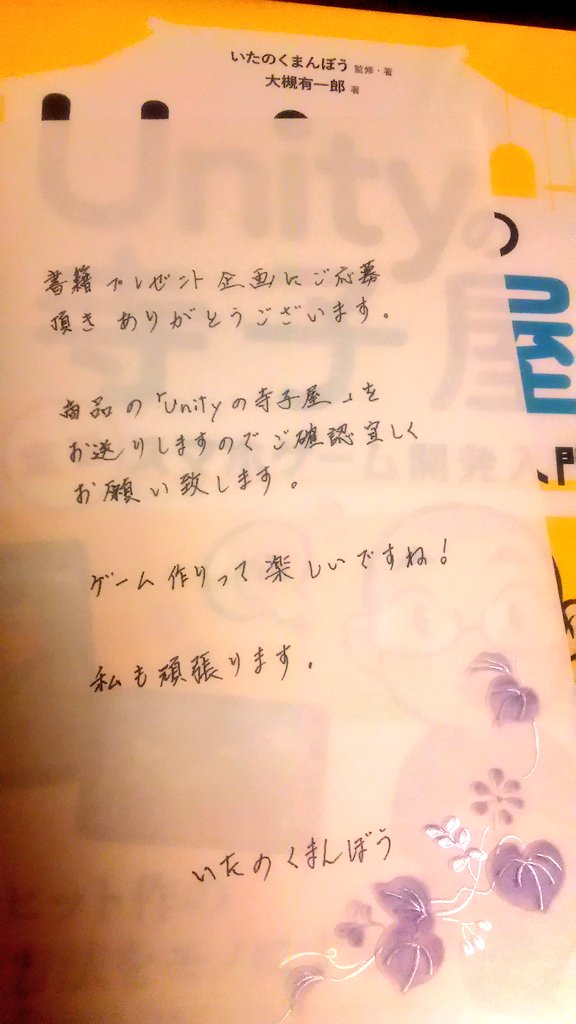 いたのくまんぼう 監修・著
大槻有一郎 著
Unityの
寺子屋
書籍プレゼント企画にご応募
頂きありがとうございます。
商品の「Unityの寺子屋」を
お送りしますのでご確認宜しく
お願い致します。
ゲーム作りって楽しいですね!
私も頑張ります。
いたのくまんぼう